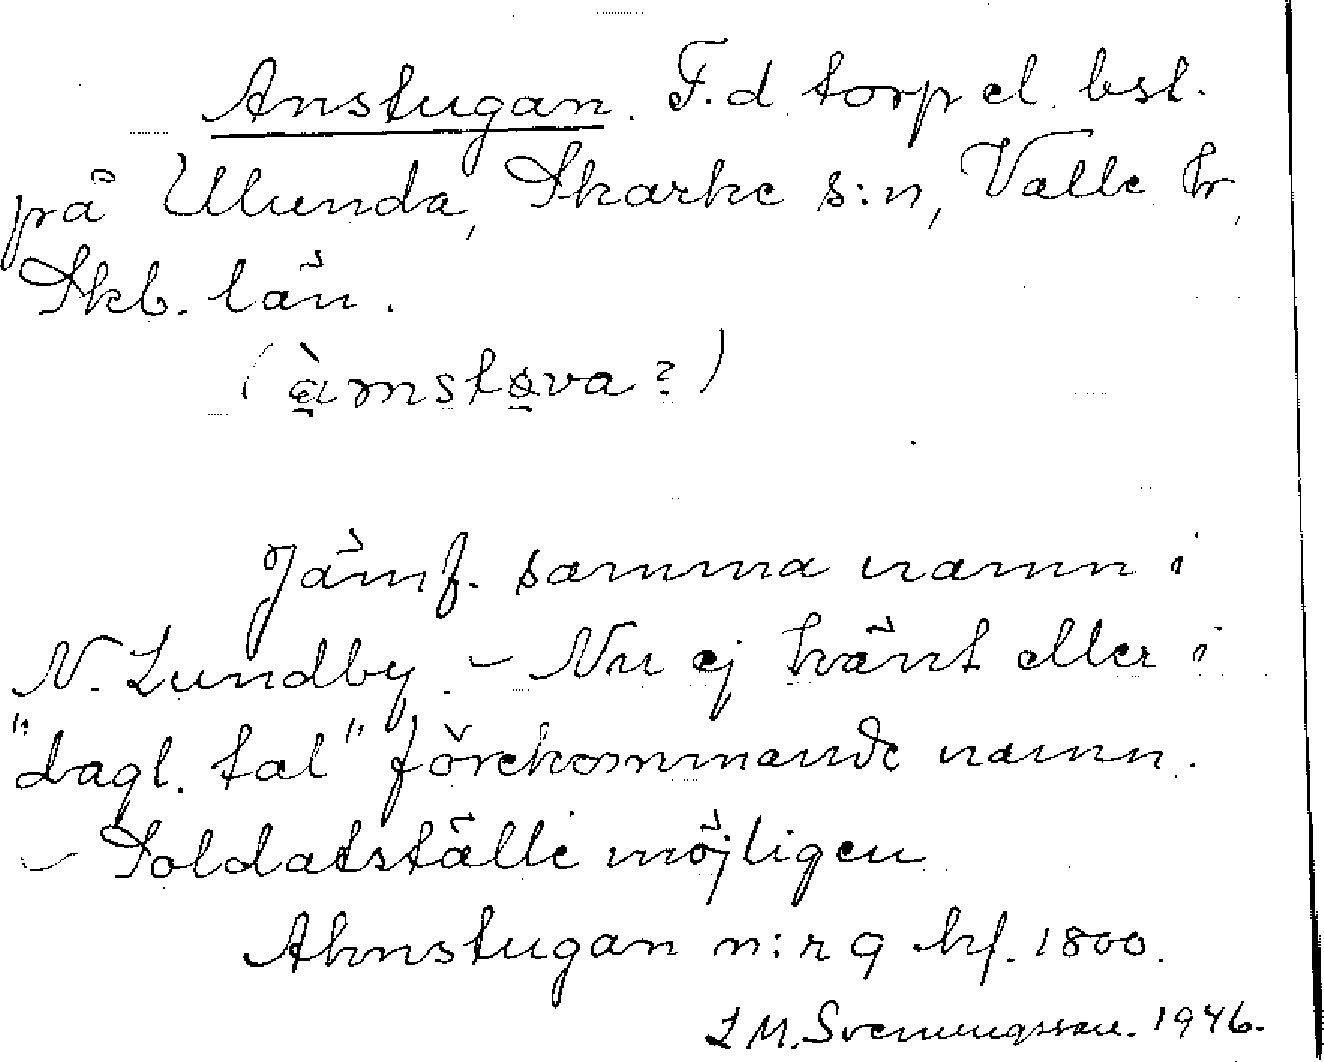 Anstugan. F.d torp el. bst.
på Ulunda, Skarke s:n, Valle hr,
Skb. län.
(àmstova?)
Jämf. samma namn i
N. Lundby. – Nu ej känt eller i
"dagl. tal" förekommande namn.
– Soldatställe möjligen
Ahnstugan n:r 9 hf. 1800.
L M. Svenungsson. 1946.